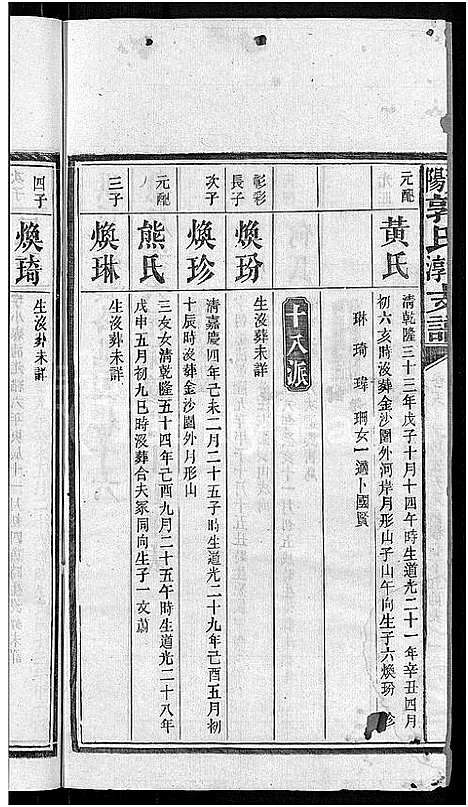 陽郭氏淳支譜
元配
黃氏
清乾隆三十三年戊子十月十四午時生道光二十一年辛丑四月
初六亥時沒葬金沙圍外河岸月形山子山午向生子六煥玢 珍
琳 琦 瑋 珊女一適卜國賢
十八派
彰彩
長子
煥玢
生沒葬未詳
次子
煥珍
清嘉慶四年己未二月二十五子時生道光二十九年己酉五月初
十辰時沒葬金沙圍外月形山
元配
熊氏
三友女清乾隆五十四年己酉九月二十五午時生道光二十八年
戊申五月初九巳時沒葬合夫冢同向生子一文蔚
三子
煥琳
生沒葬未詳
四子
煥琦
生沒葬未詳